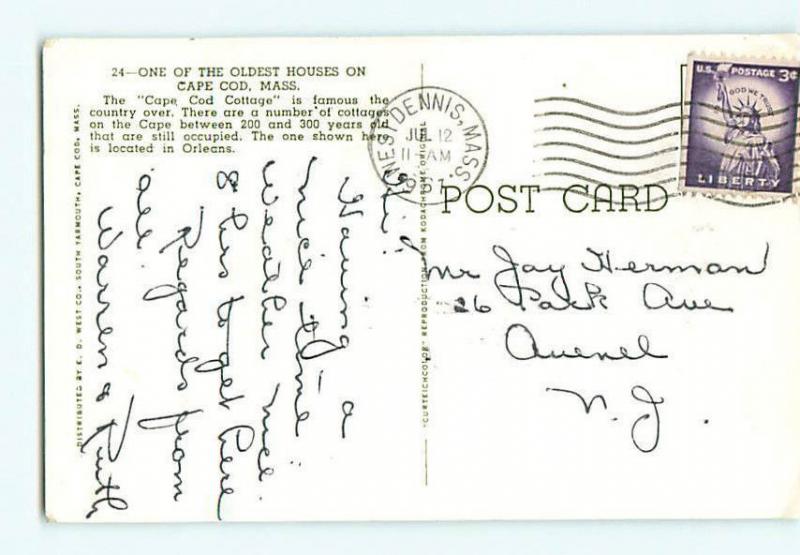 24—ONE OF THE OLDEST HOUSES ON
CAPE COD, MASS.
The "Cape Cod Cottage" is famous the
country over. There are a number of cottages
on the Cape between 200 and 300 years old
that are still occupied. The one shown here
is located in Orleans.
DISTRIBUTED BY E. D. WEST CO., SOUTH YARMOUTH, CAPE COD, MASS.
"CURTEICHCOLOR" REPRODUCTION FROM KODACHROME ORIGINAL
WEST DENNIS, MASS.
JUL 12
11-AM
U.S. POSTAGE 3¢
IN GOD WE TRUST
LIBERTY
POST CARD
Hi!
Having a
nice time
Weather nice.
8 hrs to get here
Regards from
all
Warren & Ruth
Mr Jay Herman
26 Park Ave
Avenel
N.J.